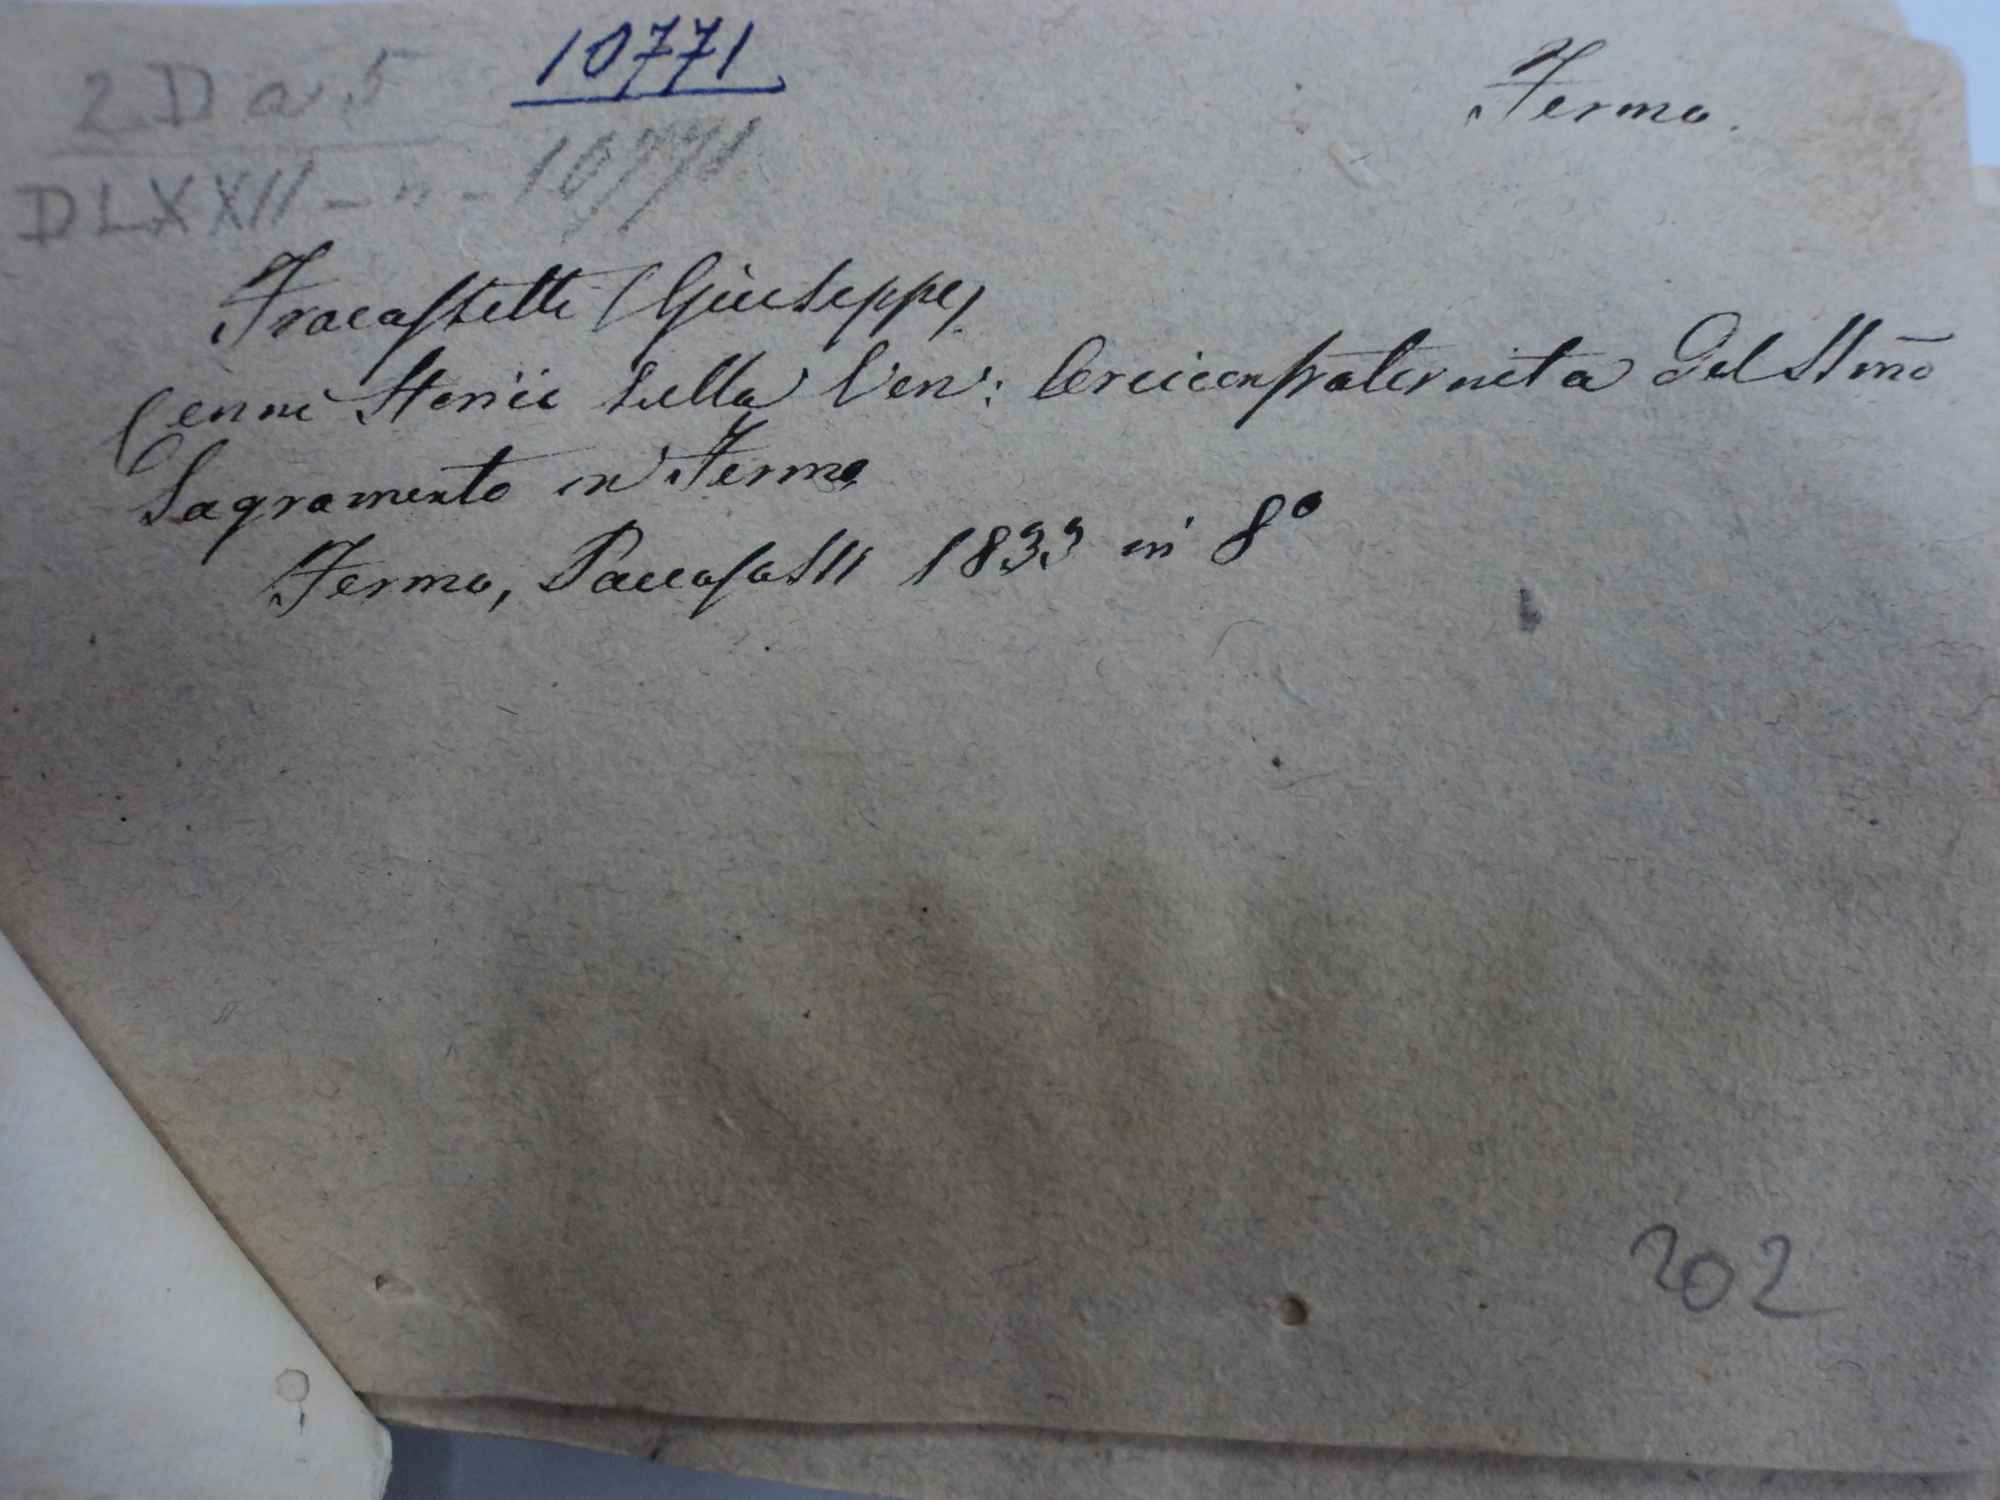 2 D a 5
10771
Fermo.
DLXXII - " - 10771
Fracassetti (Giuseppe)
Cenni Storici della Ven: Arciconfraternita del SSm̃o
Sagramento in Fermo
Fermo, Paccasassi 1833 in 8°
202